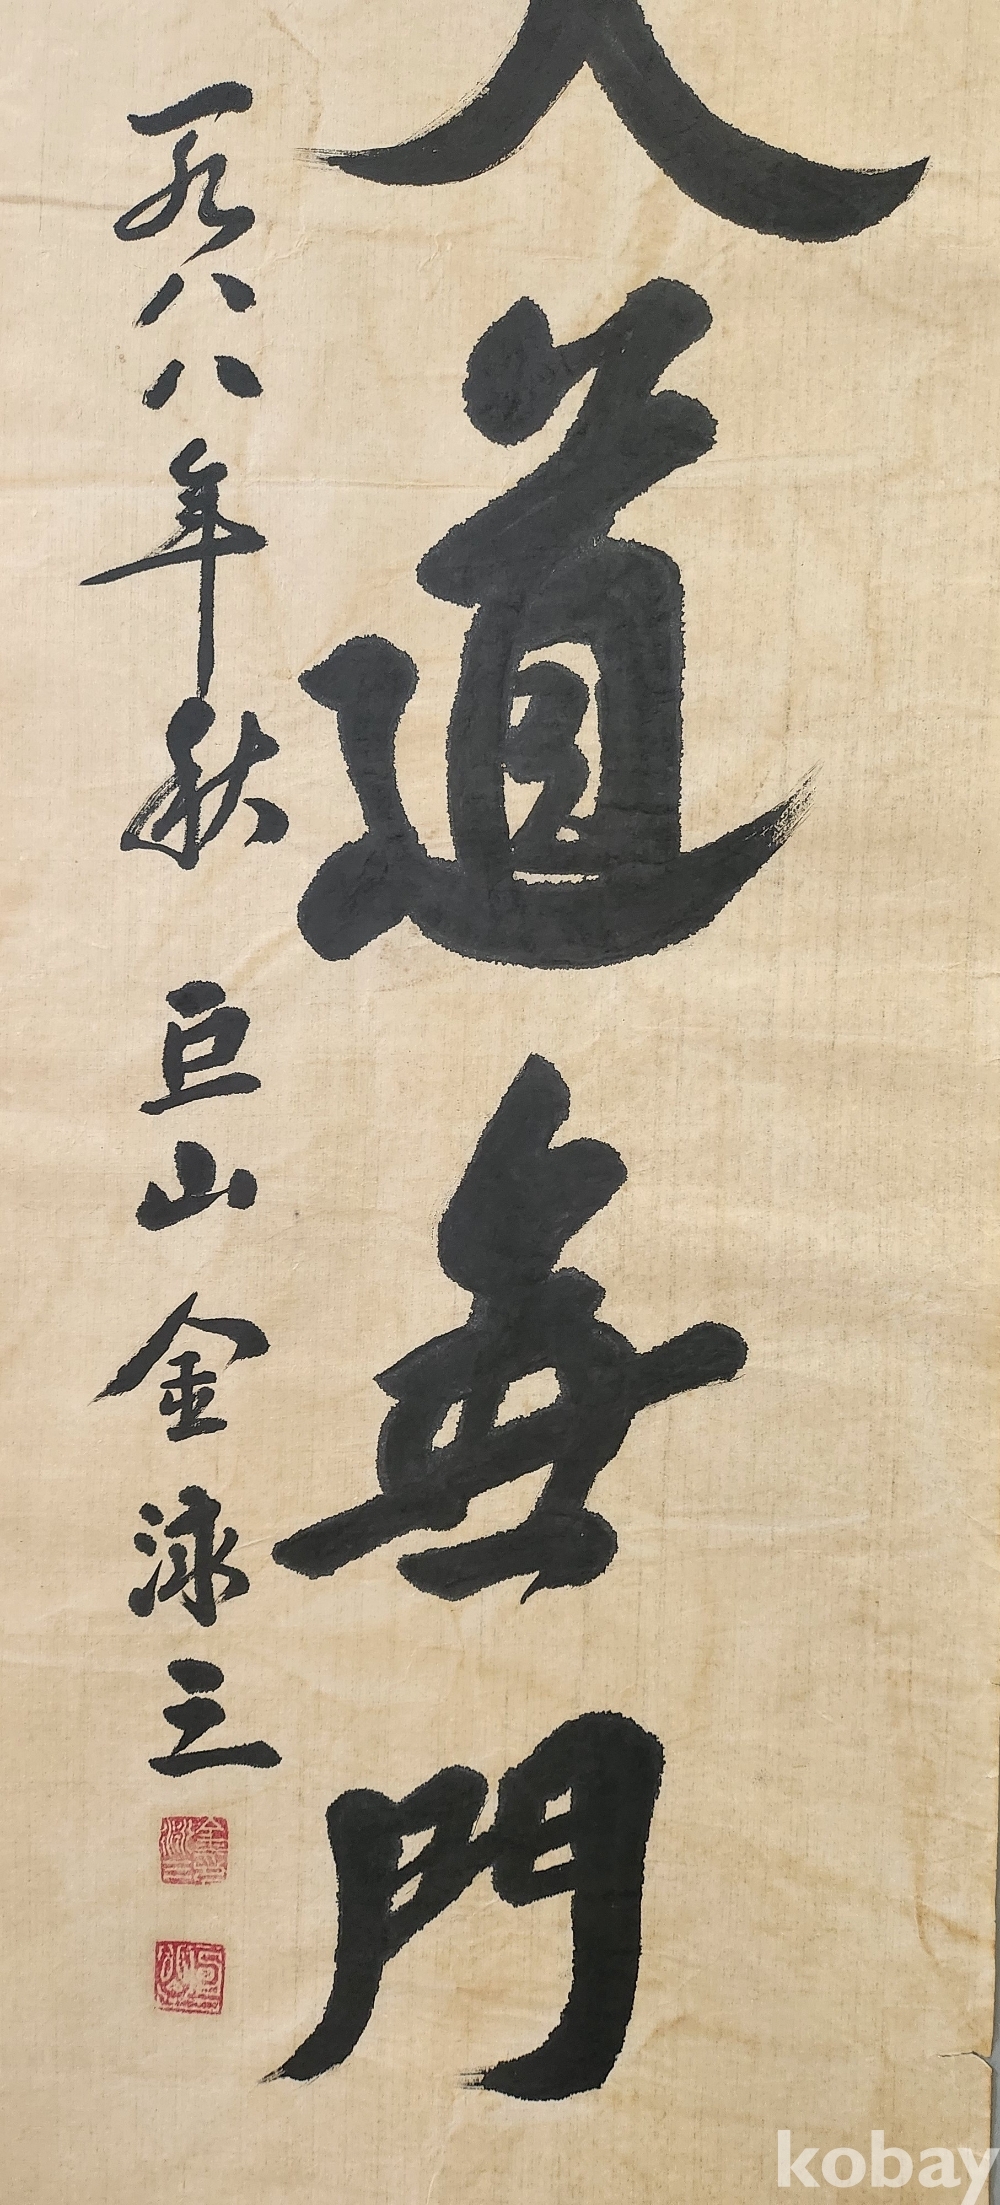 大道無門
一九八八年秋 巨山 金泳三
kobay